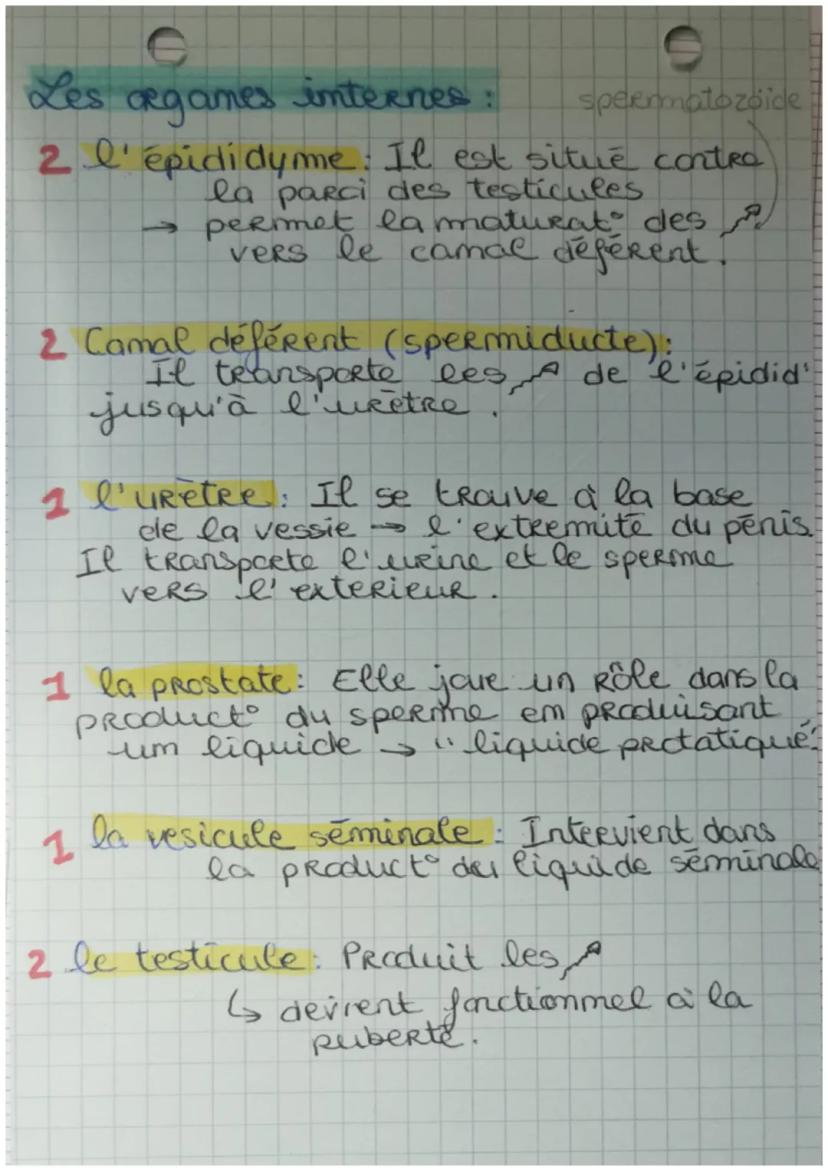 Les organes internes :
spermatozoïde
2 l'épididyme : Il est situé contre
la paroi des testicules
→ permet la maturat° des
vers le canal déférent.
2 Canal déférent (spermiducte) :
Il transporte les de l'épidid'
jusqu'à l'urètre.
1 l'urètre : Il se trouve à la base
de la vessie → l'extremité du pénis.
Il transporte l'urine et le sperme
vers l'exterieur.
1 la prostate : Elle joue un Rôle dans la
product° du sperme en produisant
un liquide → " liquide protatique"
1 la vesicule séminale : Intervient dans
la product° du liquide séminale
2 le testicule : Produit les
↳ devient fonctionnel à la
puberté.